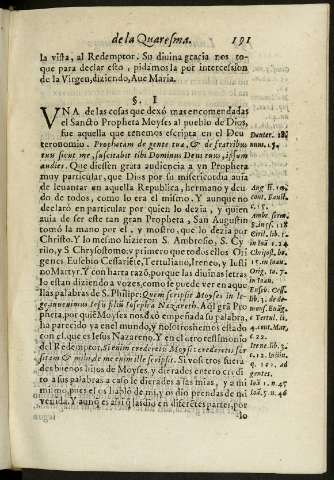 de la Quaresma. 191
la vista, al Redemptor. Su divina gracia nos to-
que para declar esto, pidamosla por intercession
de la Virgen, diziendo, Ave Maria.
§. I
VNA de las cosas que dexò mas encomendadas
el Sancto Propheta Moyses al pueblo de Dios,
fue aquella que tenemos escripta en el Deu
teronomio. Prophetam de gente tua, & de fratribus
tuis sicut me, suscitabit tibi Dominus Deus tuus, ipsum
audies. Que diessen grata audiencia a vn Propheta
muy particular, que Dios por su misericordia avia
de levantar en aquella Republica, hermano y deu
do de todos, como lo era el mismo. Y aunque no
declarò en particular por quien lo dezia, y quien
avia de ser este tan gran Propheta, San Augustin
tomò la mano por el, y mostrò, que lo dezia por
Christo. Y lo mesmo hizieron S. Ambrosio, S. Cy
rilo, y S. Chrysostomo. y primero que todos ellos Ori
genes Eusebio Cessariẽse, Tertuliano, Ireneo, y Iusti
no Martyr. Y con harta razõ, porque las divinas letras
lo estan diziendo a vozes, como se puede ver en aque
llas palabras de S. Philipe: Quem scripsit Moyses in le-
ge invenimus Iesu filiũ Ioseph a Nazareth. Aql grã Pro
pheta, por quiẽ Moyses nos dxò empeñada su palabra,
ha parecido ya en el mundo, y nosotros hemos estado
con el, que es Iesus Nazareno. Y en el otro testimonio
del Redemptor, Si enim crederetis Moysi: crederetis for
sitan & mihi, de me enim ille scripsit. Si vosotros fuera
des buenos hijos de Moyses, y dierades entero credi
to a sus palabras a caso le dierades a las mias, y a mi
mismo, pues el os hablò de mi, y os diò prendas de mi
venida. Y aunq̃ es assi q̃ las diò en diferẽtes partes, por
lo
Deuter. 18.
num. 15.
c. 15.
in Ioan.
c. 22.
gentes.
Ioã 1. n. 47
Ioã 5. n. 46